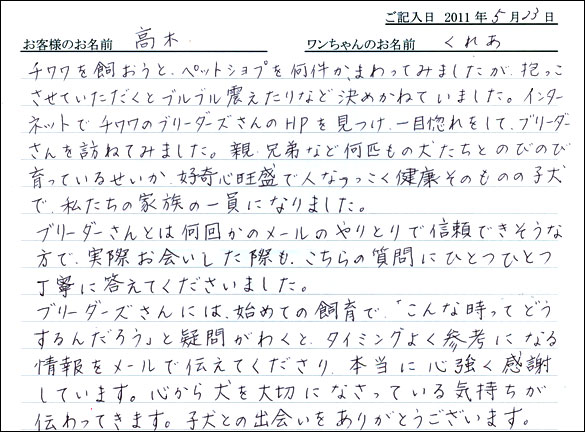 ご記入日 2011年5月23日
お客様のお名前 高木 ワンちゃんのお名前 くれあ
チワワを飼おうと、ペットショップを何件か、まわってみましたが、抱っこ
させていただくとブルブル震えたりなど決めかねていました。インター
ネットでチワワのブリーダーズさんのHPを見つけ、一目惚れをして、ブリーダー
さんを訪ねてみました。親、兄弟など何匹もの犬たちとのびのび
育っているせいか、好奇心旺盛で人なつっこく健康そのものの子犬
で、私たちの家族の一員になりました。
ブリーダーさんとは何回かのメールのやりとりで信頼できそうな
方で、実際お会いした際も、こちらの質問にひとつひとつ
丁寧に答えてくださいました。
ブリーダーズさんには、始めての飼育で、「こんな時ってどう
するんだろう」と疑問がわくと、タイミングよく参考になる
情報をメールで伝えてくださり、本当に心強く感謝
しています。心から犬を大切になさっている気持ちが
伝わってきます。子犬との出会いをありがとうございます。